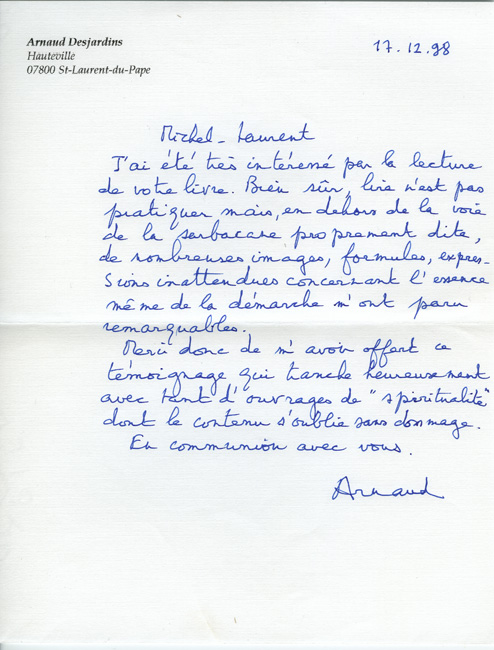 Arnaud Desjardins
17.12.98
Hauteville
07800 St-Laurent-du-Pape
Michel-Laurent
J'ai été très intéressé par la lecture
de votre livre. Bien sûr, lire n'est pas
pratiquer mais, en dehors de la voie
de la sarbacane proprement dite,
de nombreuses images, formules, expres-
sions inattendues concernant l'essence
même de la démarche m'ont paru
remarquables.
Merci donc de m'avoir offert ce
témoignage qui tranche heureusement
avec tant d'ouvrages de "spiritualité"
dont le contenu s'oublie sans dommage.
En communion avec vous.
Arnaud